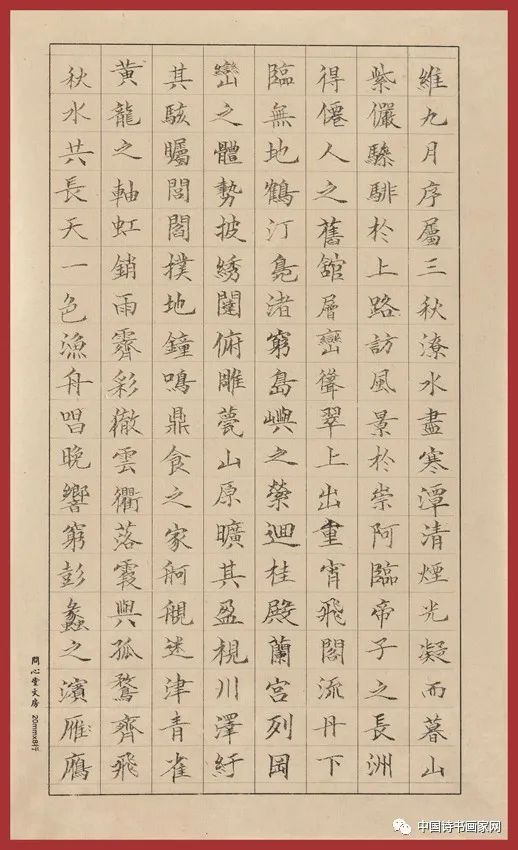 維九月序屬三秋潦水盡寒潭清煙光凝而暮山
紫儼驂騑於上路訪風景於崇阿臨帝子之長洲
得僊人之舊舘層巒聳翠上出重宵飛閣流丹下
臨無地鶴汀鳧渚窮島嶼之榮迴桂殿蘭宮列岡
巒之體勢披綉闥俯雕甍山原曠其盈視川澤紆
其駭矚閭閻撲地鐘鳴鼎食之家舸艦迷津青雀
黃龍之軸虹銷雨霽彩徹雲衢落霞與孤鶩齊飛
秋水共長天一色漁舟唱晚響窮彭蠡之濱雁
問心堂文房 20mmx8行
中国诗书画家网